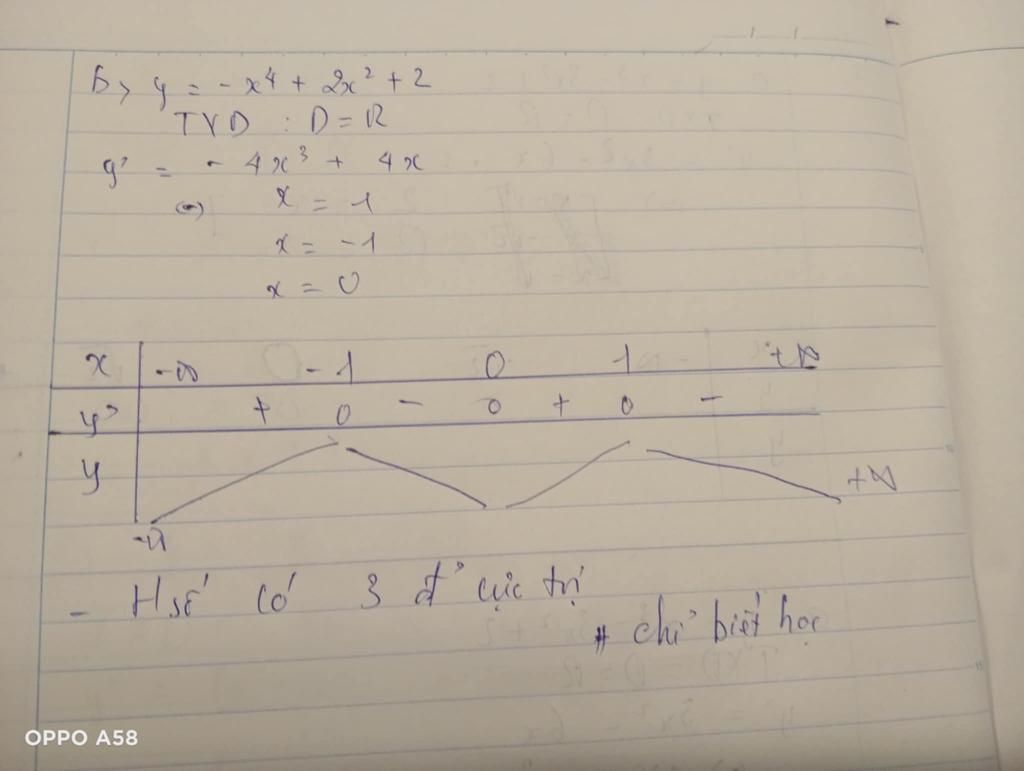 b> y = - x⁴ + 2x² + 2
TXD : D = R
y' = - 4x³ + 4x
(=) x = 1
x = -1
x = 0
x -∞ -1 0 1 +∞
y' + 0 - 0 + 0 -
y
+∞
-∞
- H số có 3 đ' cực trị
# chỉ biết học
OPPO A58